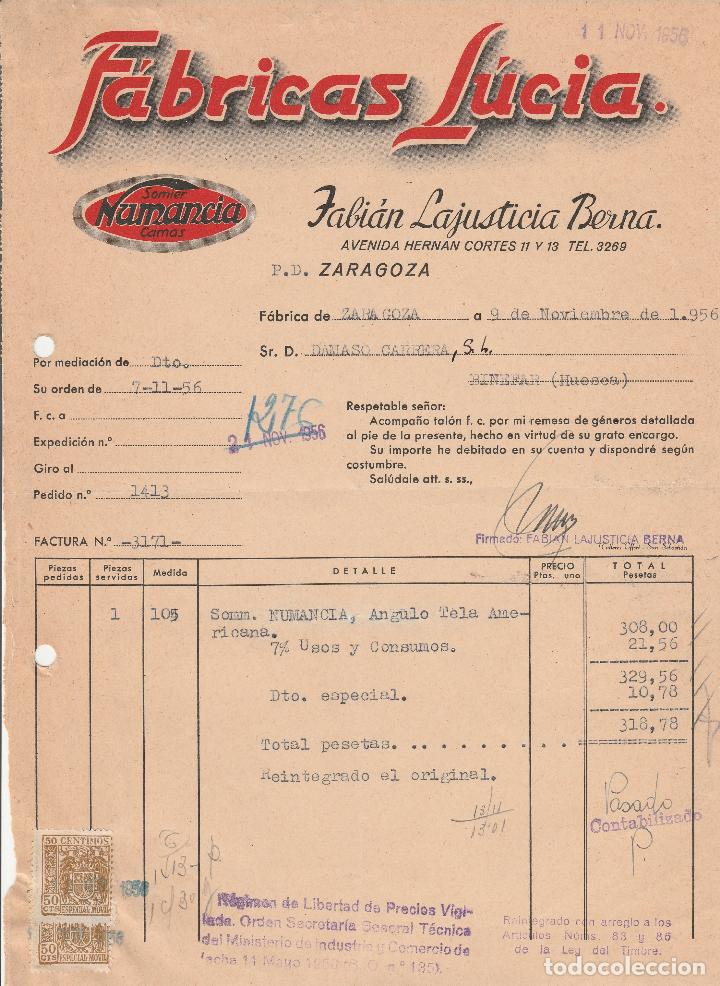 11 NOV. 1956
Fábricas Lúcia.
Somier
Numancia
Camas
Fabián Lajusticia Berna.
AVENIDA HERNAN CORTES 11 Y 13 TEL. 3269
P.D. ZARAGOZA
Fábrica de ZARAGOZA a 9 de Noviembre de 1.956
Sr. D. DAMASO CARRERA, S.L.
BINEFAR (Huesca)
Por mediación de Dto.
Su orden de 7-11-56
F. c. a
Expedición n.º
21 NOV. 1956
Giro al
Pedido n.º 1413
FACTURA N.º -3171-
Respetable señor:
Acompaño talón f. c. por mi remesa de géneros detallada
al pie de la presente, hecho en virtud de su grato encargo.
Su importe he debitado en su cuenta y dispondré según
costumbre.
Salúdale att. s. ss.,
Firmado: FABIAN LAJUSTICIA BERNA
Piezas pedidas Piezas servidas Medida DETALLE PRECIO Ptas. uno TOTAL Pesetas
1 105 Somm. NUMANCIA, Angulo Tela Ame-
ricana. 308,00
7% Usos y Consumos. 21,56
329,56
Dto. especial. 10,78
318,78
Total pesetas. . . . . . . . . .
Reintegrado el original.
13/11
13.01
Pasado
Contabilizado
P.
50 CENTIMOS
50
CTS ESPECIAL MOVIL
1956
50
CTS ESPECIAL MOVIL
56
Régimen de Libertad de Precios Vigi-
lada. Orden Secretaría General Técnica
del Ministerio de Industria y Comercio de
fecha 11 Mayo (B. O. n.º 135).
Reintegrado con arreglo a los
Artículos Núms. 83 y 85
de la Ley del Timbre.
todocoleccion